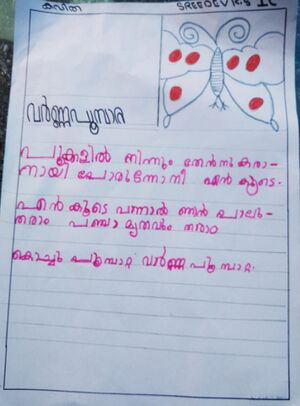 കവിത
SREEDEVI.S I C
വർണ്ണപൂമ്പാറ്റ
പൂക്കളിൽ നിന്നും തേൻനുകരാ-
നായി പോരുന്നോനീ എൻ കൂടെ.
എൻ കൂടെ വന്നാൽ ഞാൻ പാലു-
തരാം പഞ്ചാമൃതവും തരാം
കൊച്ചു പൂമ്പാറ്റ വർണ്ണപൂമ്പാറ്റ.